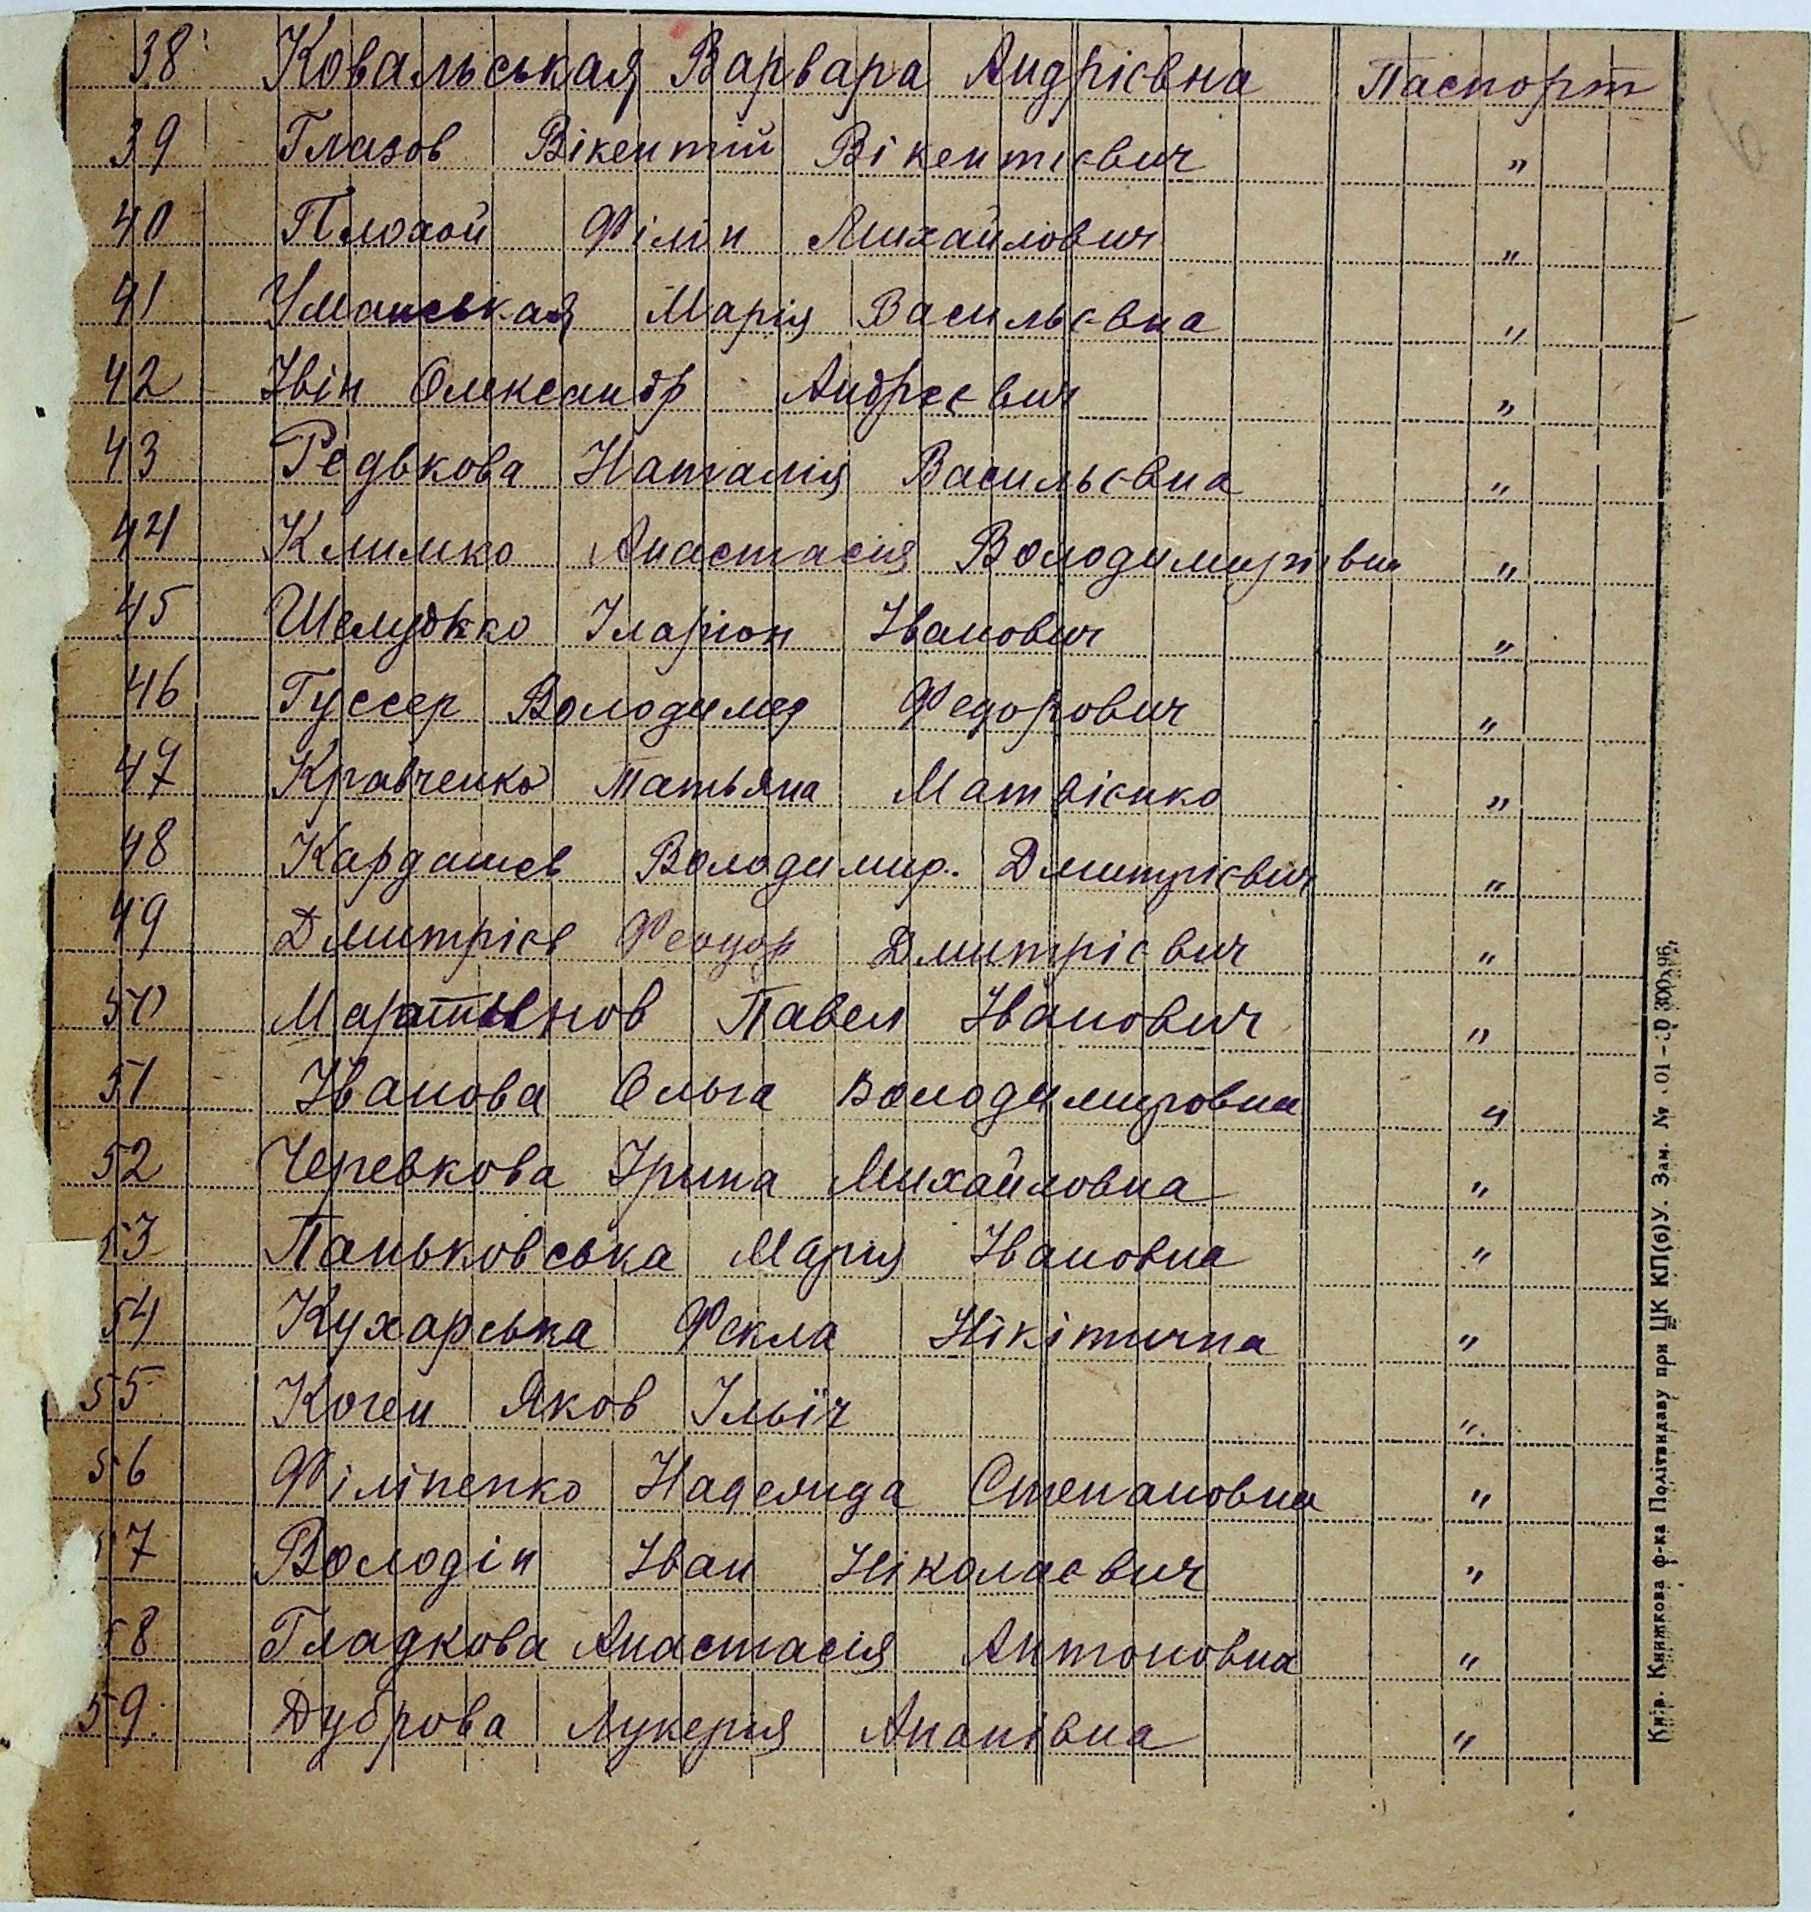 38 Ковальськая Варвара Андрієвна Паспорт
39 Глазов Вікентій Вікентієвич "
40 Плохой Філіп Михайлович "
41 Уманськая Марія Васильєвна "
42 Івін Олександр Андрєєвич "
43 Редькова Наталія Васильєвна "
44 Климко Анастасія Володимирівна "
45 Шелудько Іларіон Іванович "
46 Гуссер Володимер Федорович "
47 Кравченко Татьяна Матвієнко "
48 Кардашев Володимир. Дмитрієвич "
49 Дмитрієв Феодор Дмитрієвич "
50 Мартынов Павел Іванович "
51 Іванова Ольга Володимировна "
52 Черевкова Ірина Михайловна "
53 Паньковська Марія Івановна "
54 Кухарська Фекла Нікітична "
55 Коген Яков Ільїч "
56 Філіпенко Надежда Степановна "
57 Володін Іван Ніколаєвич "
58 Гладкова Анастасія Антоновна "
59. Дуброва Лукерія Ананівна "
Київ. Книжкова ф-ка Політвидаву при ЦК КП(б)У. Зам. №